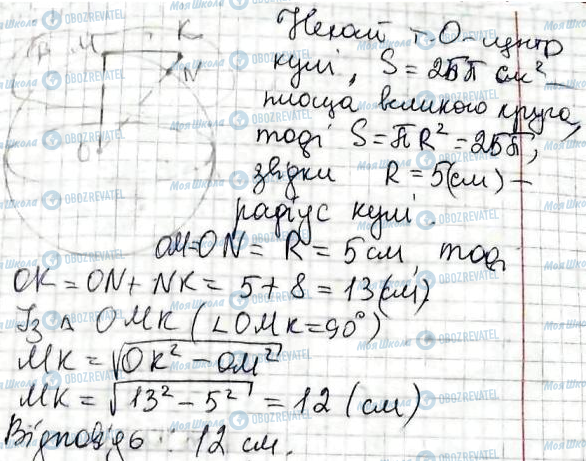 Нехай т О-центр
кулі, S = 25π см² –
площа великого круга,
тоді S = πR² = 25π,
звідки R = 5(см) –
радіус кулі.
B M K
N
O
OM=ON = R = 5 см, тоді
OK = ON + NK = 5 + 8 = 13(см)
Із △ OMK (∠OMK = 90°)
MK = √OK² – OM²
MK = √13² – 5² = 12 (см)
Відповідь : 12 см.